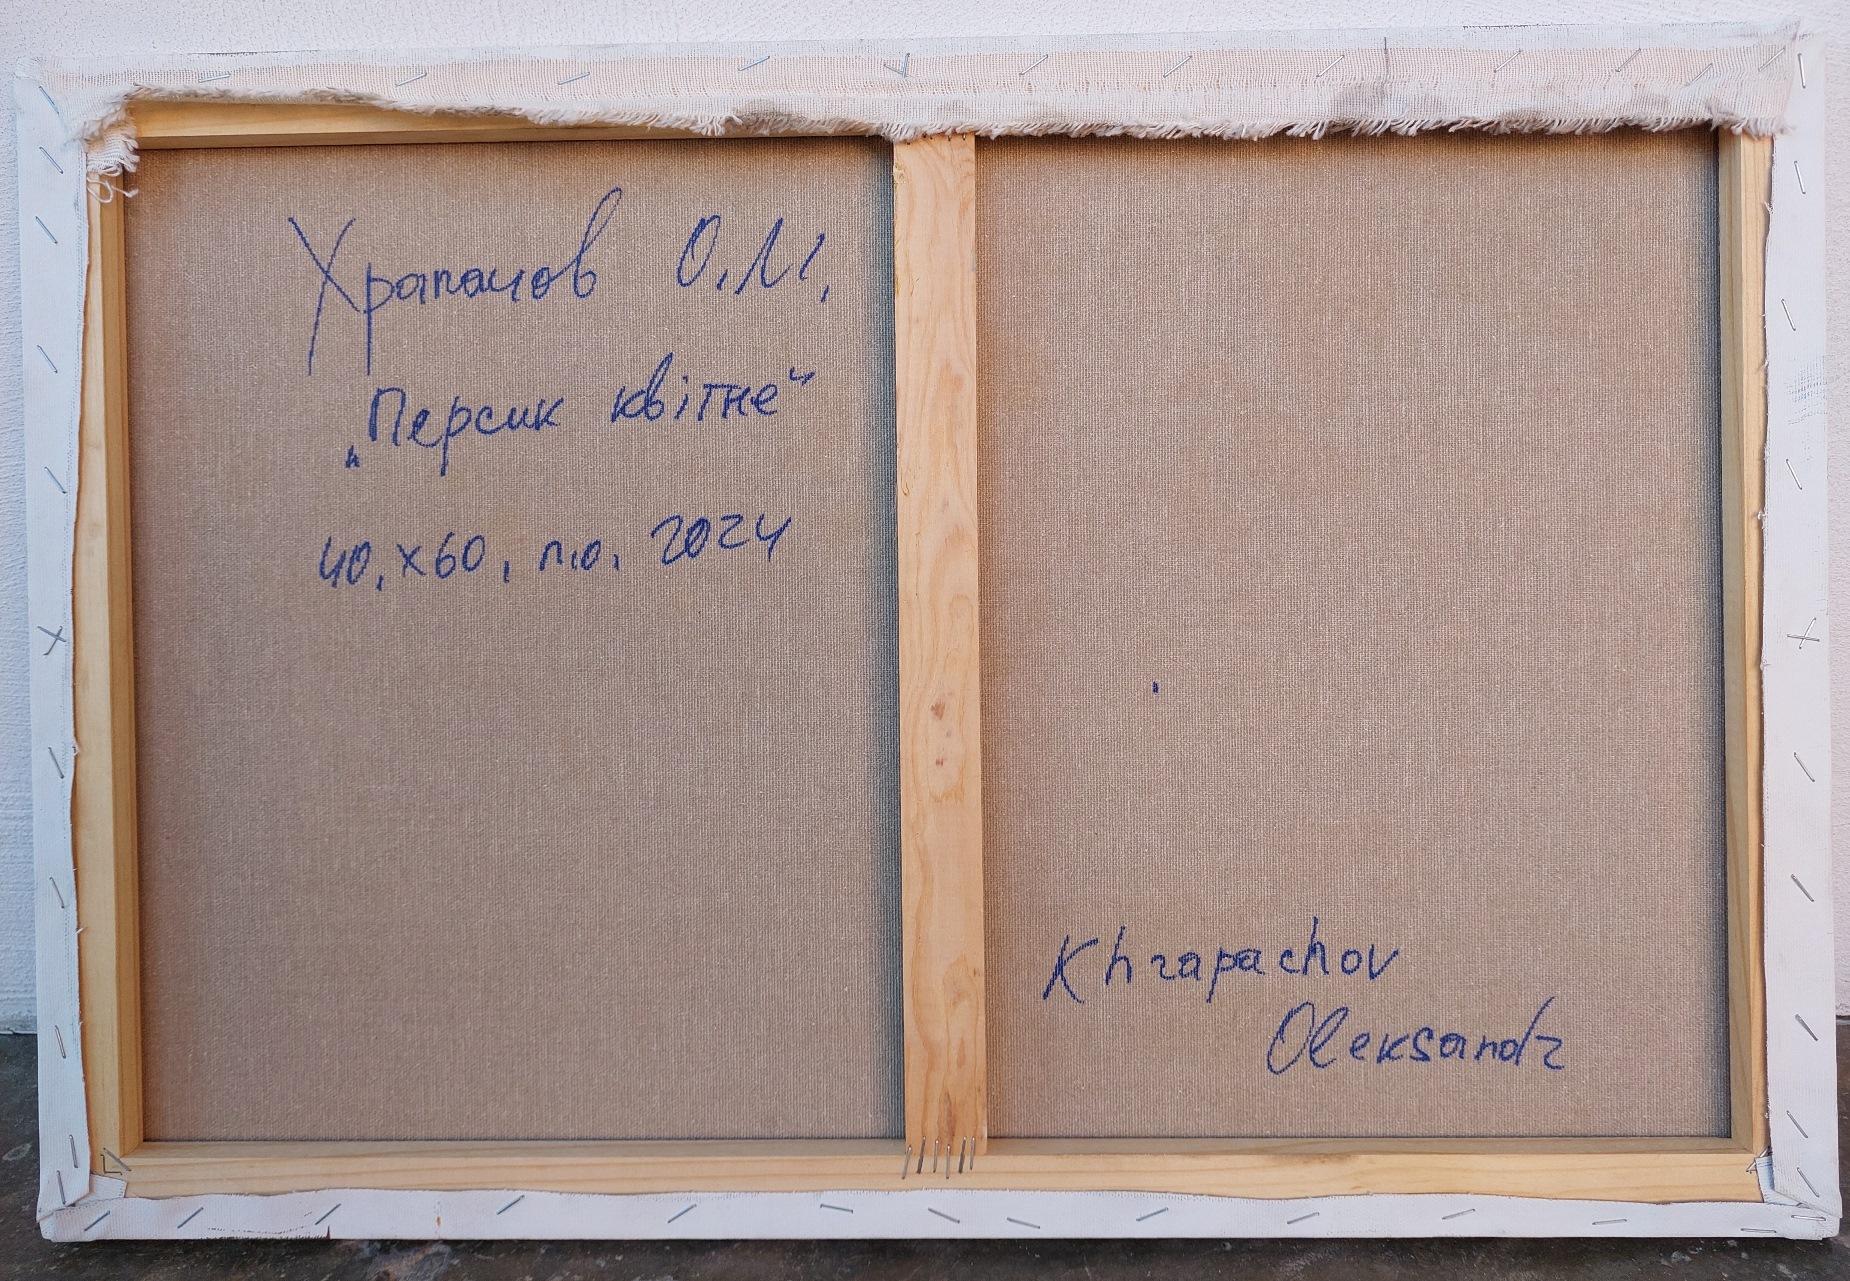 Храпачов О.М.
„Персик квітне“
40,х60, п.о. 2024
Khrapachov
Oleksandr